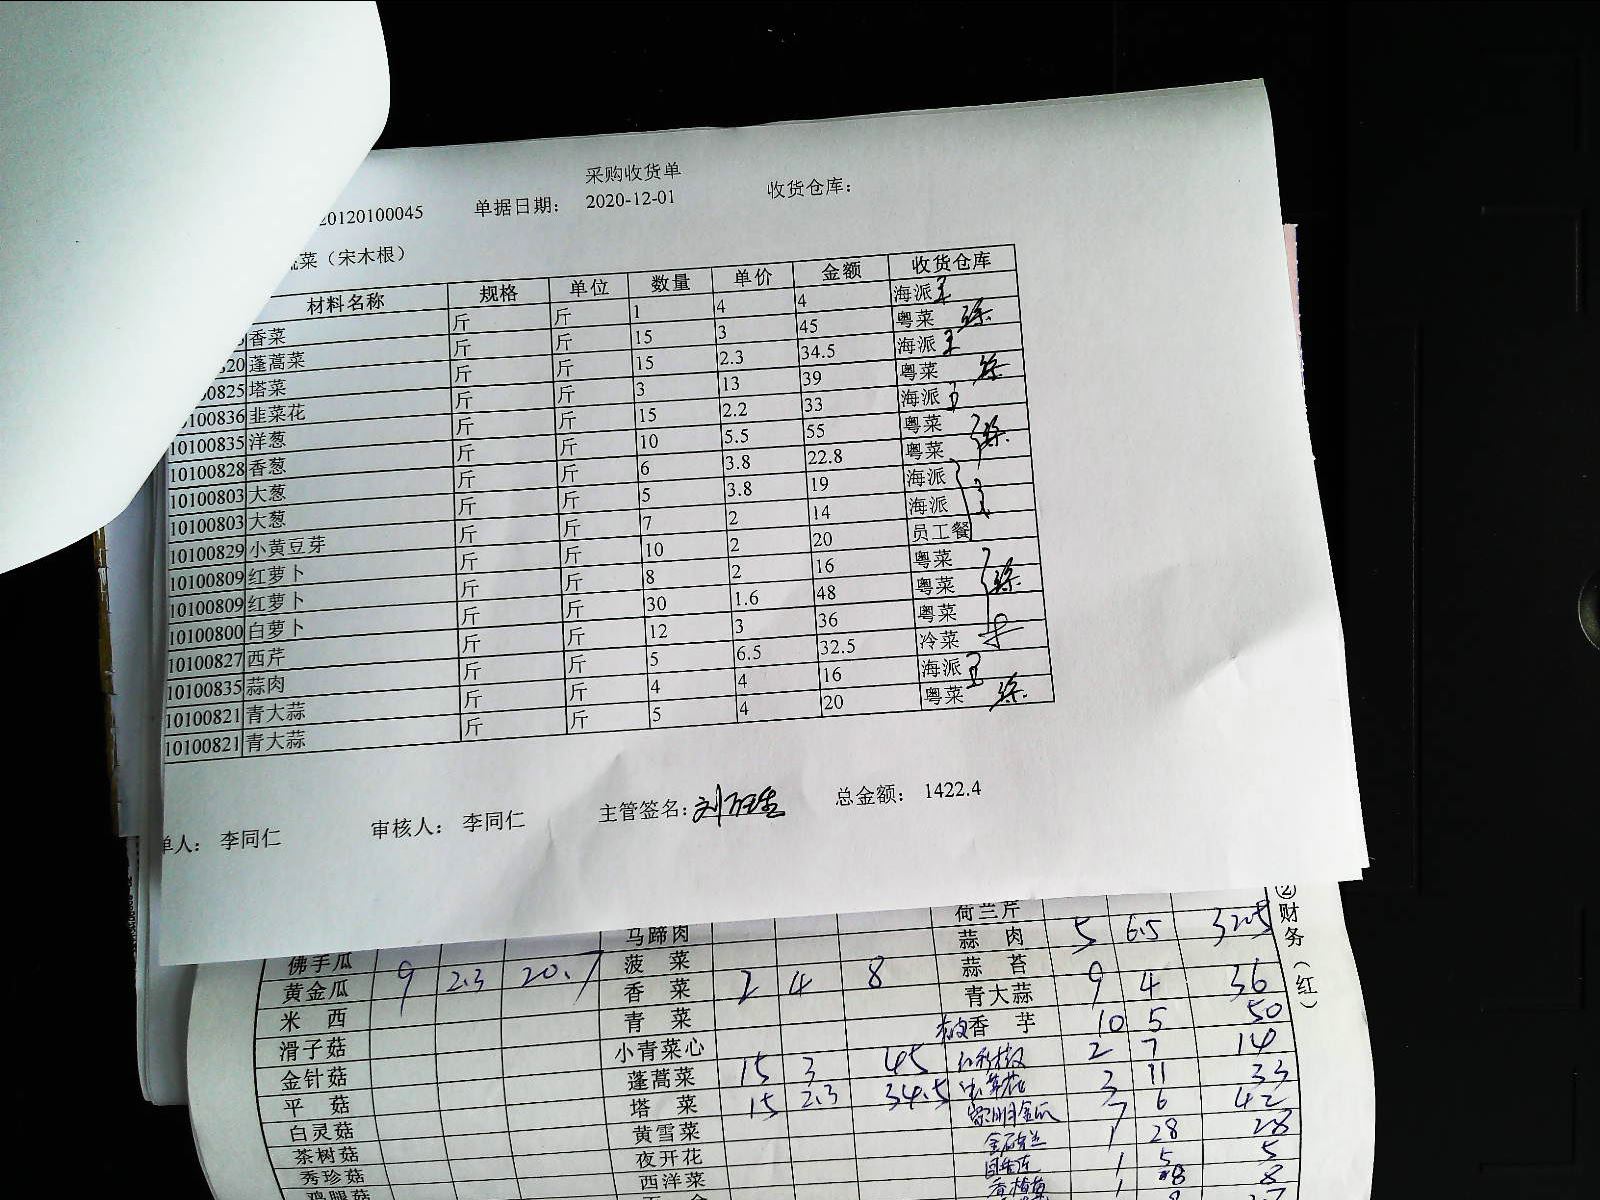 采购收货单
20120100045 单据日期： 2020-12-01 收货仓库：
蔬菜（宋木根）
材料名称 规格 单位 数量 单价 金额 收货仓库
香菜 斤 斤 1 4 4 海派 王
820 蓬蒿菜 斤 斤 15 3 45 粤菜
00825 塔菜 斤 斤 15 2.3 34.5 海派 王
0100836 韭菜花 斤 斤 3 13 39 粤菜
10100835 洋葱 斤 斤 15 2.2 33 海派
10100828 香葱 斤 斤 10 5.5 55 粤菜
10100803 大葱 斤 斤 6 3.8 22.8 粤菜
10100803 大葱 斤 斤 5 3.8 19 海派
10100829 小黄豆芽 斤 斤 7 2 14 海派
10100809 红萝卜 斤 斤 10 2 20 员工餐
10100809 红萝卜 斤 斤 8 2 16 粤菜
10100800 白萝卜 斤 斤 30 1.6 48 粤菜
10100827 西芹 斤 斤 12 3 36 粤菜
10100835 蒜肉 斤 斤 5 6.5 32.5 冷菜
10100821 青大蒜 斤 斤 4 4 16 海派
10100821 青大蒜 斤 斤 5 4 20 粤菜
单人： 李同仁 审核人： 李同仁 主管签名： 总金额： 1422.4
荷兰芹
马蹄肉 蒜肉 5 6.5 32.5
佛手瓜 菠菜 蒜苔
黄金瓜 9 2.3 20.7 香菜 2 4 8 青大蒜 9 4 36
米西 青菜 香芋 10 5 50
滑子菇 小青菜心 2 7 14
金针菇 蓬蒿菜 15 3 45 3 11 33
平菇 塔菜 15 2.3 34.5 7 6 42
白灵菇 黄雪菜 1 28 28
茶树菇 夜开花 1 5 5
秀珍菇 西洋菜 1 8 8
鸡腿菇
②财务（红）